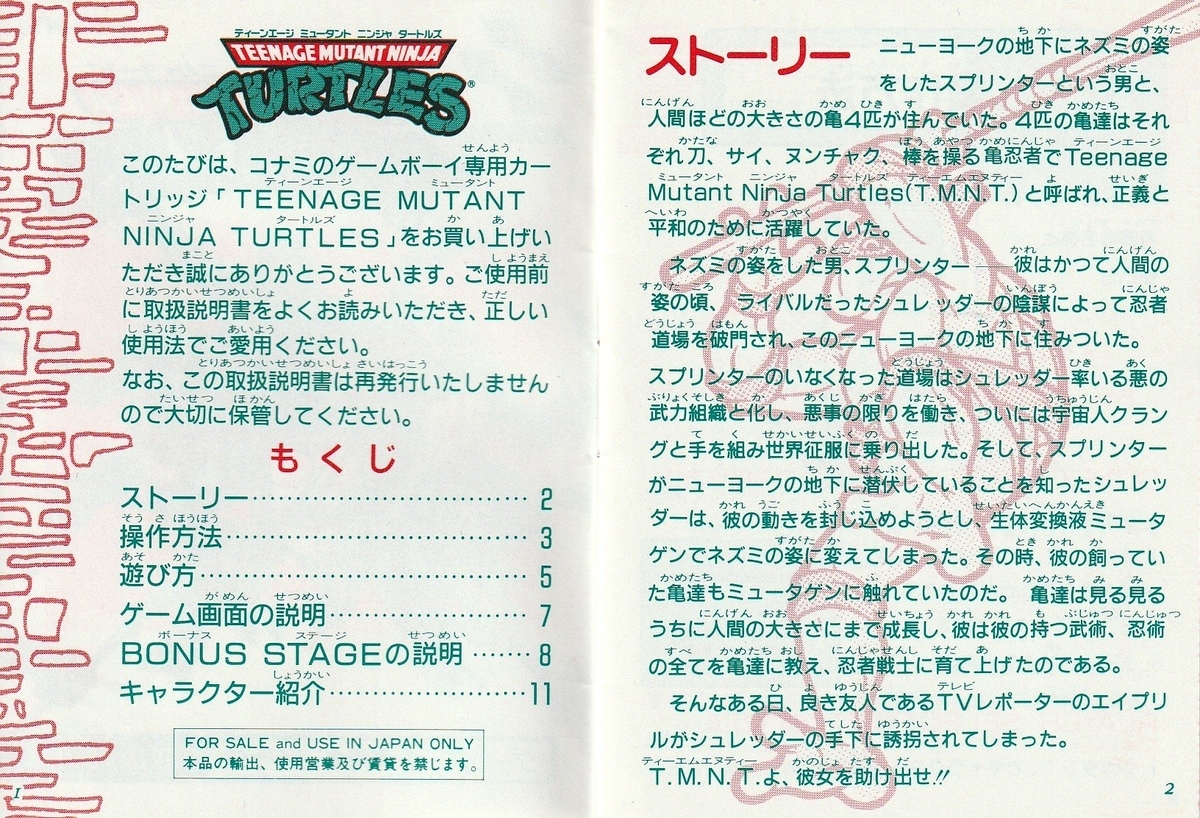 ティーンエージ ミュータント ニンジャ タートルズ
TEENAGE MUTANT NINJA
TURTLES®
このたびは、コナミのゲームボーイ専用カー
トリッジ「TEENAGE MUTANT
NINJA TURTLES」をお買い上げい
ただき誠にありがとうございます。ご使用前
に取扱説明書をよくお読みいただき、正しい
使用法でご愛用ください。
なお、この取扱説明書は再発行いたしません
ので大切に保管してください。
もくじ
ストーリー……………………………2
操作方法………………………………3
遊び方…………………………………5
ゲーム画面の説明……………………7
BONUS STAGEの説明………8
キャラクター紹介……………………11
FOR SALE and USE IN JAPAN ONLY
本品の輸出、使用営業及び賃貸を禁じます。
1
ストーリー
ニューヨークの地下にネズミの姿
をしたスプリンターという男と、
人間ほどの大きさの亀4匹が住んでいた。4匹の亀達はそれ
ぞれ刀、サイ、ヌンチャク、棒を操る亀忍者でTeenage
Mutant Ninja Turtles(T.M.N.T.)と呼ばれ、正義と
平和のために活躍していた。
ネズミの姿をした男、スプリンター── 彼はかつて人間の
姿の頃、ライバルだったシュレッダーの陰謀によって忍者
道場を破門され、このニューヨークの地下に住みついた。
スプリンターのいなくなった道場はシュレッダー率いる悪の
武力組織と化し、悪事の限りを働き、ついには宇宙人クラン
グと手を組み世界征服に乗り出した。そして、スプリンター
がニューヨークの地下に潜伏していることを知ったシュレッ
ダーは、彼の動きを封じ込めようとし、生体変換液ミュータ
ゲンでネズミの姿に変えてしまった。その時、彼の飼ってい
た亀達もミュータゲンに触れていたのだ。 亀達は見る見る
うちに人間の大きさにまで成長し、彼は彼の持つ武術、忍術
の全てを亀達に教え、忍者戦士に育て上げたのである。
そんなある日、良き友人であるTVレポーターのエイプリ
ルがシュレッダーの手下に誘拐されてしまった。
T.M.N.T.よ、彼女を助け出せ!!
2